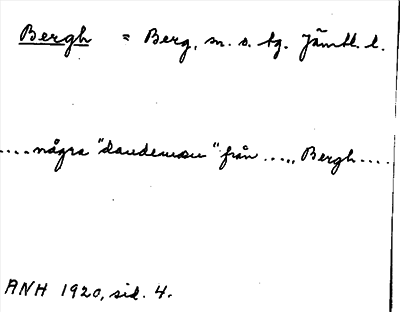 Bergh = Berg, sn. o. tg. Jämtl. l.
....några "dandemæn" från ..... Bergh....
ANH 1920, sid. 4.